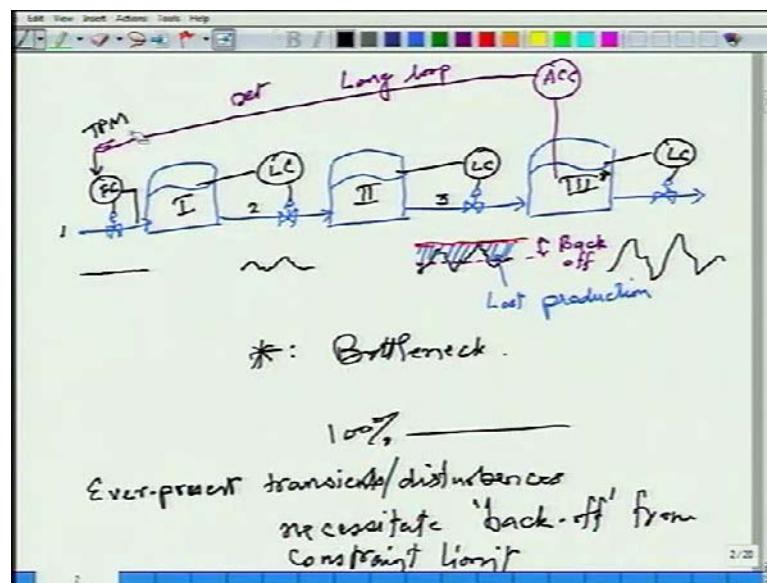 Edit View Insert Actions Tools Help
B I
Det Long loop ACC
TPM
FC LC LC LC
I II III*
1 2 3
Back off
Lost production
*: Bottleneck.
100%
Ever-present transients/disturbances
necessitate 'back-off' from
constraint limit
2/20
2